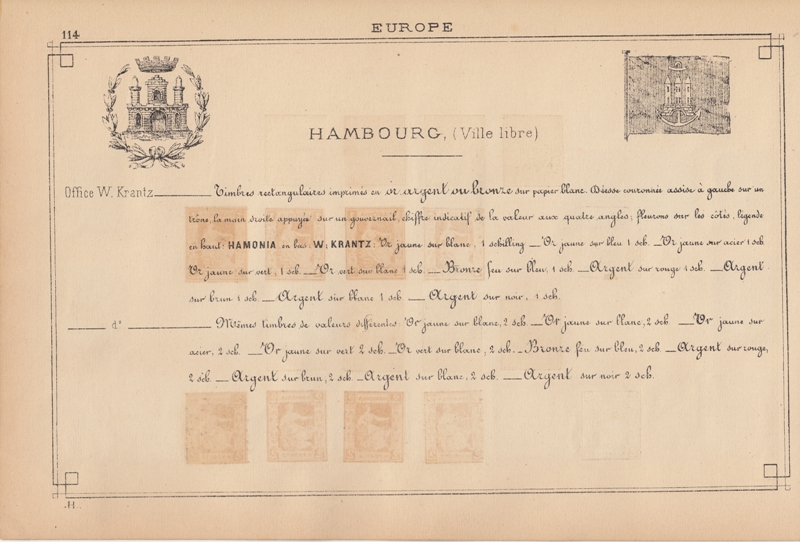 114
EUROPE
HAMBOURG, (Ville libre)
Office W. Krantz Timbres rectangulaires imprimés en or argent ou bronze sur papier blanc. Déesse couronnée assise à gauche sur un
trône, la main droite appuyée sur un gouvernail, chiffre indicatif de la valeur aux quatre angles; fleurons sur les côtés, légende
en haut: HAMONIA en bas: W: KRANTZ: Or jaune sur blanc, 1 schilling — Or jaune sur bleu 1 sch. — Or jaune sur acier 1 sch.
Or jaune sur vert, 1 sch. — Or vert sur blanc 1 sch. — Bronze feu sur bleu, 1 sch. — Argent sur rouge 1 sch. — Argent
sur brun 1 sch. — Argent sur blanc 1 sch — Argent sur noir, 1 sch.
— d° — Mêmes timbres de valeurs différentes. Or jaune sur blanc, 2 sch. — Or jaune sur blanc, 2 sch. — Or jaune sur
acier, 2 sch. — Or jaune sur vert 2 sch. — Or vert sur blanc, 2 sch. — Bronze feu sur bleu, 2 sch — Argent sur rouge,
2 sch. — Argent sur brun, 2 sch — Argent sur blanc, 2 sch. — Argent sur noir 2 sch.
.H.